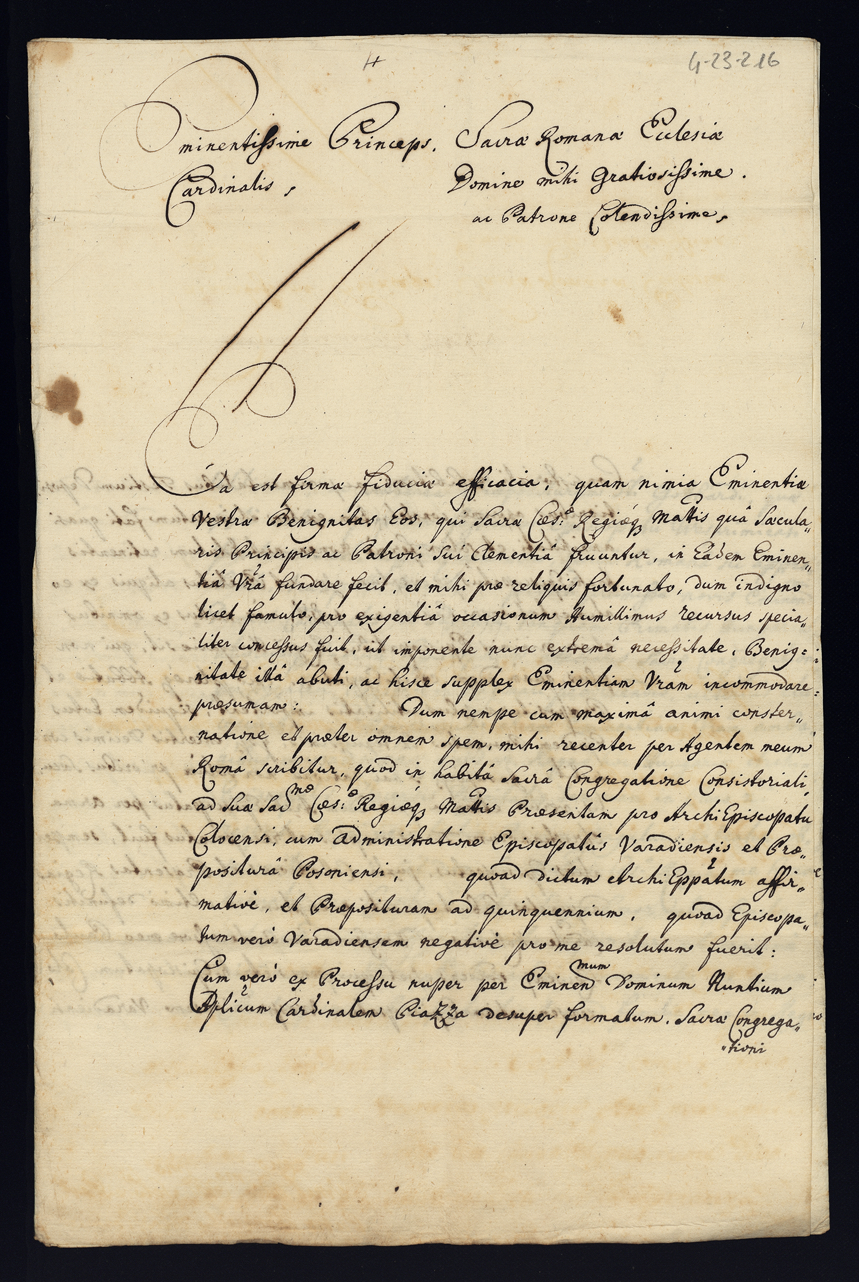 4-23-216
Eminentissime Princeps. Sacræ Romanæ Ecclesiæ
Cardinalis, Domine mihi Gratiosissime.
ac Patrone Colendissime,
Ea est formæ fiduciæ efficacia, quam nimia Eminentiæ
Vestræ Benignitas Eos, qui Sacræ Cæs:ᵉ Regiæq3 Mattis quâ Sæcula„
ris Principis ac Patroni sui Clementiâ fruuntur, in Eadem Eminen„
tiâ Vrâ fundare fecit, et mihi præ reliquis fortunato, dum indigno
licet famulo, pro exigentiâ occasionum humillimus recursus specia„
liter concessus fuit, ut imponente nunc extremâ necessitate, Benig=
nitate illâ abuti, ac hisce supplex Eminentiam Vram incommodare
præsumam: Dum nempe cum maximâ animi conster„
natione et præter omnem spem, mihi recenter per Agentem meum
Româ scribitur, quod in habitâ Sacrâ Congregatione Consistoriali,
ad Suæ Sacmæ Cæs:ᵉ Regiæq3 Mattis Præsentam pro ArchiEpiscopatu
Colocensi, cum administratione Episcopatûs Varadiensis et Præ„
positurâ Posoniensi, quoad dictum ArchiEppatum affir„
mativè, et Præposituram ad quinquennium, quoad Episcopa„
tum verò Varadiensem negativè pro me resolutum fuerit:
Cum verò ex Processu nuper per Eminendmum Dominum Nuntium
Aplicum Cardinalem Piazza desuper formatum, Sacræ Congrega„
„tioni